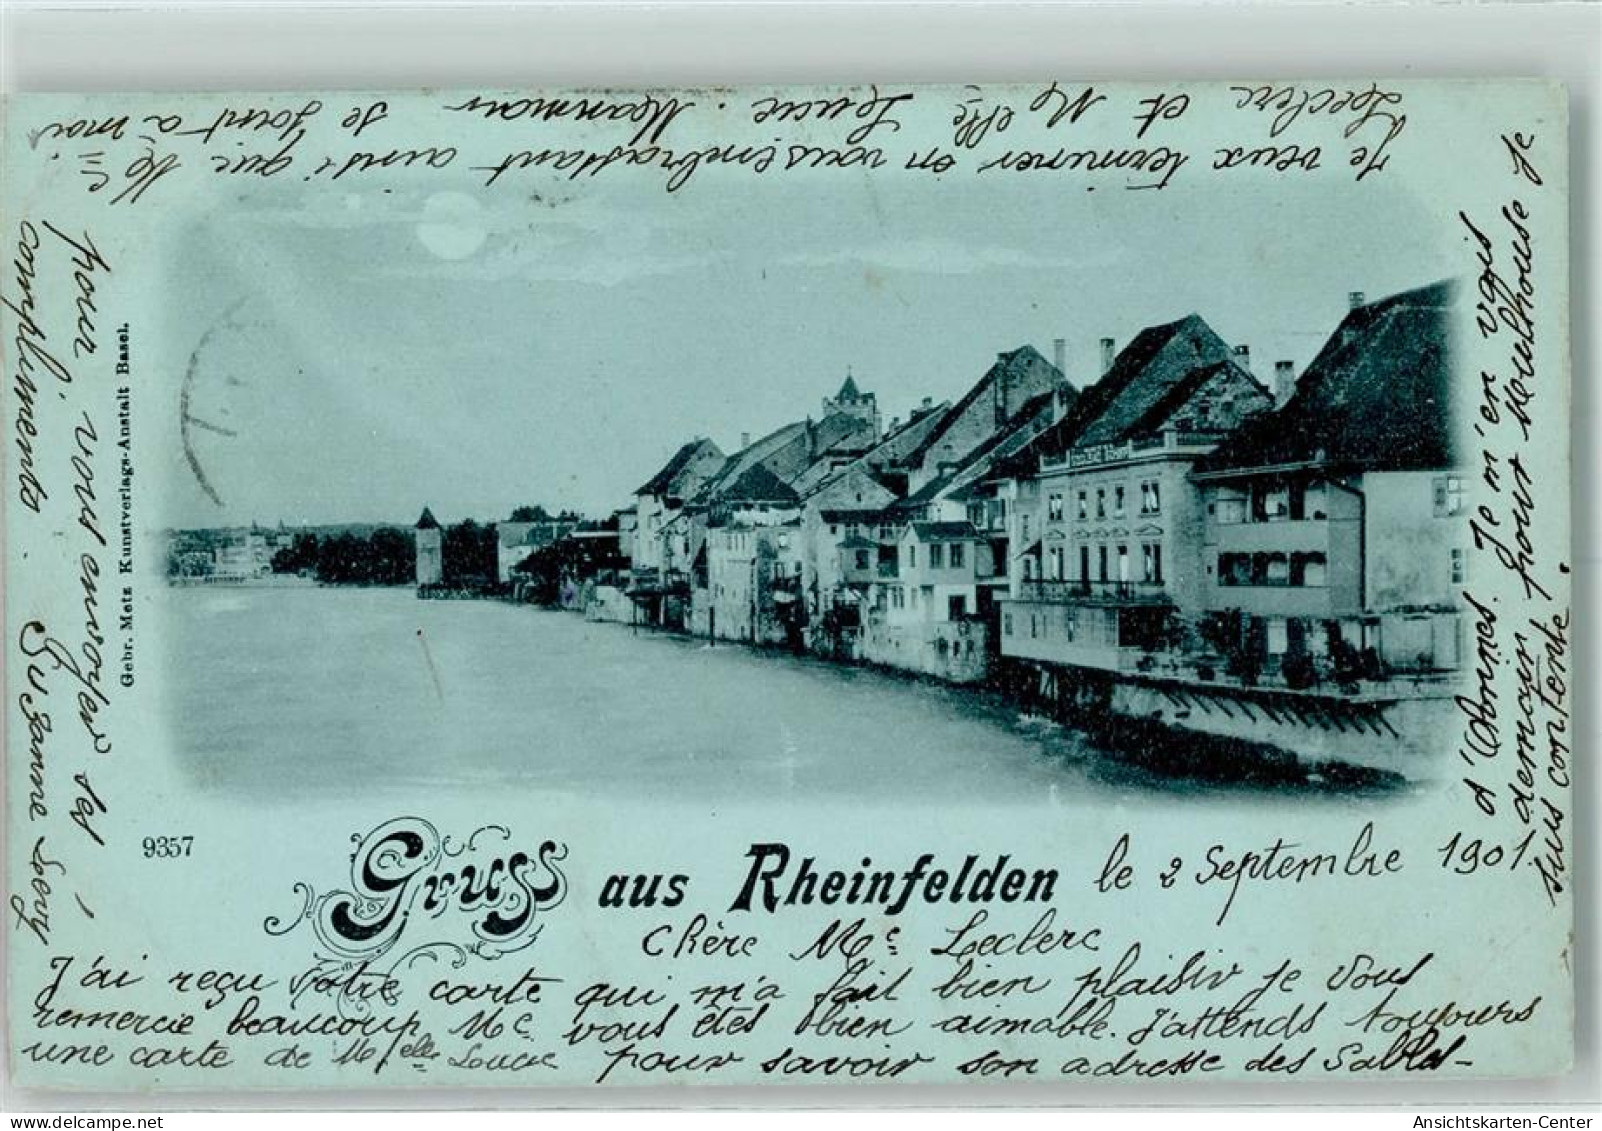 Gruss aus Rheinfelden
9357
Gebr. Metz Kunstverlags-Anstalt Basel.
le 2 Septembre 1901.
Chère Me Leclerc
J'ai reçu votre carte qui m'a fait bien plaisir je vous
remercie beaucoup Me vous étes bien aimable. J'attends toujours
une carte de Melle Lucie pour savoir son adresse des Sables-
d'Olonnes. Je m'en vais
demain pour Mulhouse je
suis contente.
Je veux terminer en vous embrassant ainsi que Me
Leclerc et Melle Lucie. Manman se joint à moi
pour vous envoyer ses
compliments. Suzanne Levy
Ansichtskarten-Center